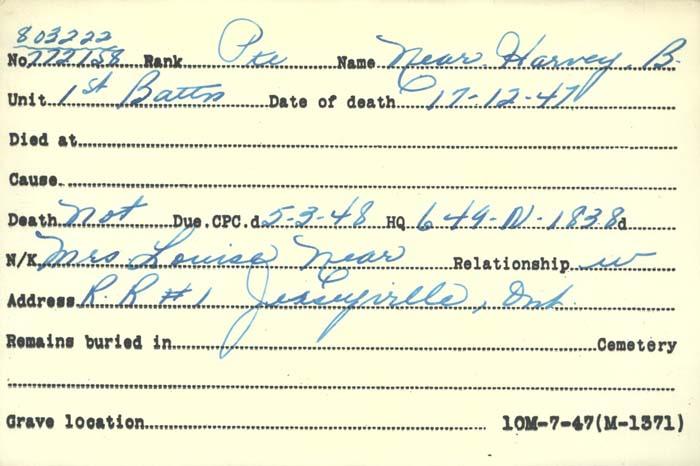 803222
No. 772158 Rank Pte Name Near Harvey. B.
Unit 1st Battn Date of death 17-12-47
Died at
Cause
Death Not Due.CPC.d 5-3-48 HQ 649-N-1838d
N/K Mrs Louise Near Relationship w
Address R.R #1 Jerseyville, Ont.
Remains buried in Cemetery
Grave location 10M-7-47(M-1371)